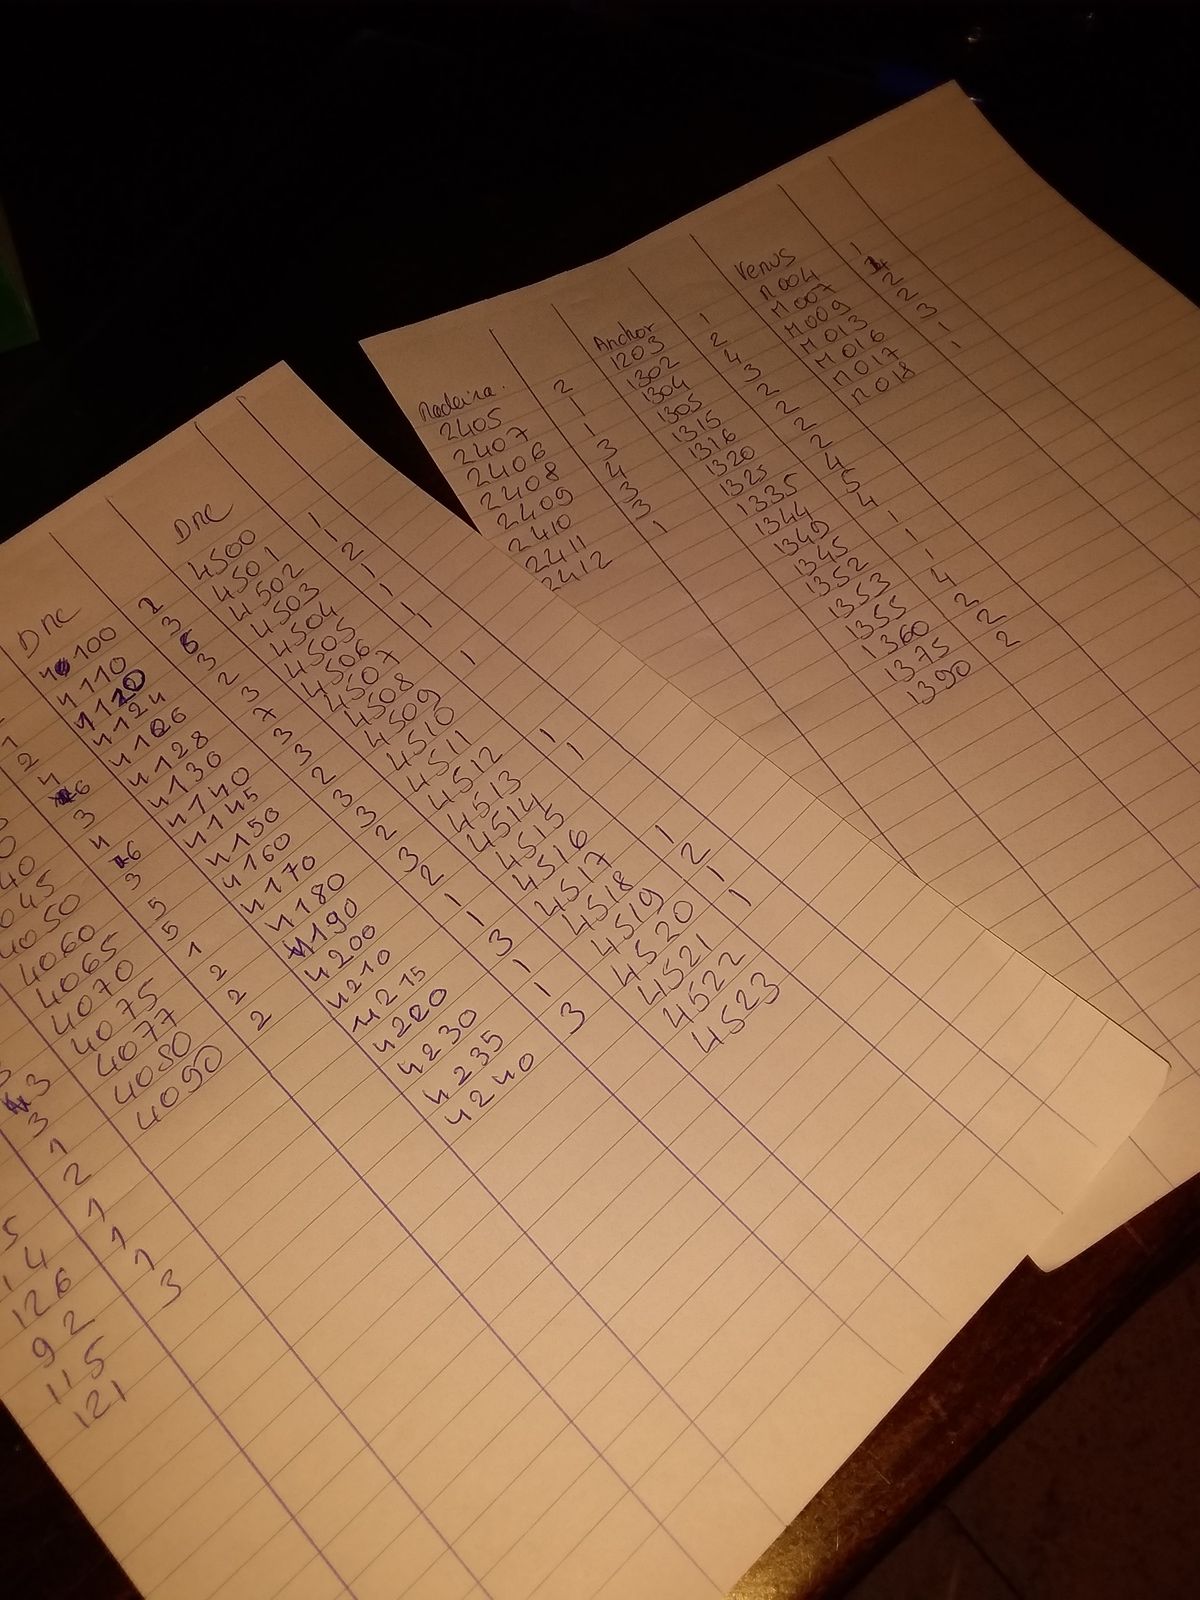 3
3
1
2
1
1
1
3
126
92
115
121
4050
4060
4065
4070
4075
4077
4080
4090
1
2
4
6
3
4
6
3
5
5
1
2
2
2
DMC
4100
4110
4120
4124
4126
4128
4130
4140
4145
4150
4160
4170
4180
4190
4200
4210
4215
4220
4230
4235
4240
2
3
6
3
2
3
7
3
3
2
3
3
2
3
2
1
1
3
1
1
3
DMC
4500
4501
4502
4503
4504
4505
4506
4507
4508
4509
4510
4511
4512
4513
4514
4515
4516
4517
4518
4519
4520
4521
4522
4523
1
2
1
1
1
1
1
1
1
2
1
1
Madeira
2405
2407
2406
2408
2409
2410
2411
2412
2
1
1
3
4
3
3
1
Anchor
1203
1302
1304
1305
1315
1316
1320
1325
1335
1344
1349
1345
1352
1353
1355
1360
1375
1390
1
2
4
3
2
2
2
4
5
4
1
1
4
2
2
2
Venus
M004
M007
M009
M013
M016
M017
M018
1
2
2
3
1
1